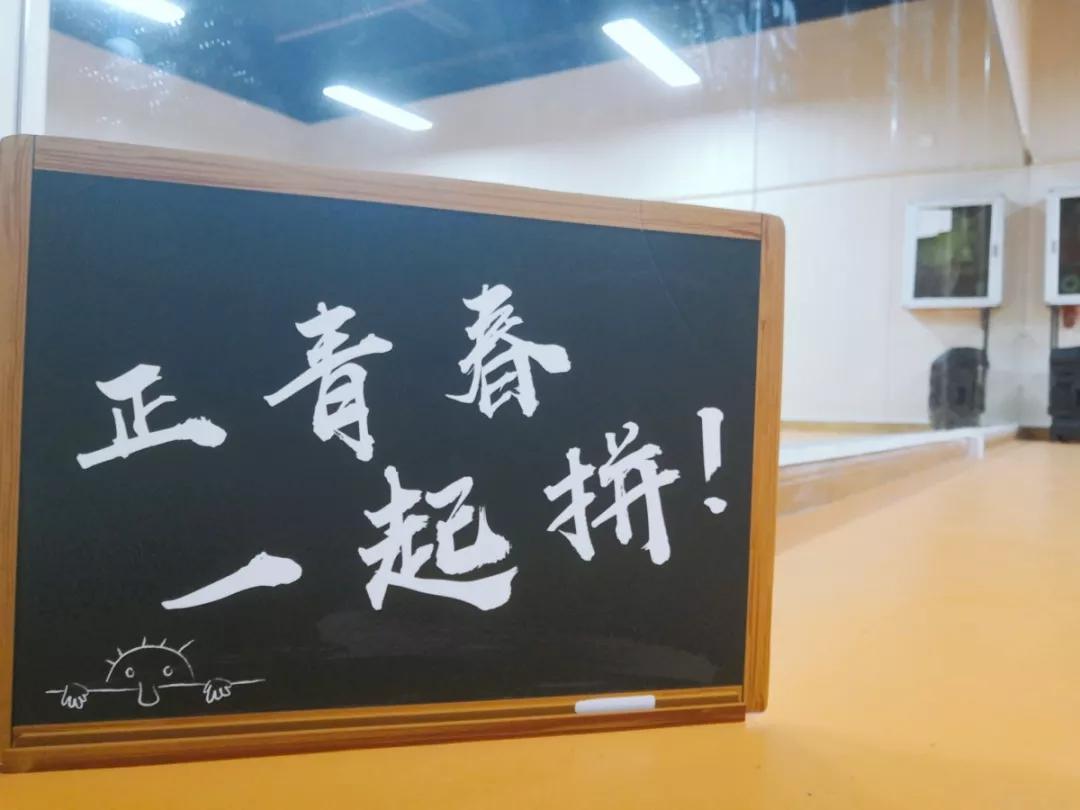 正青春
一起拼!